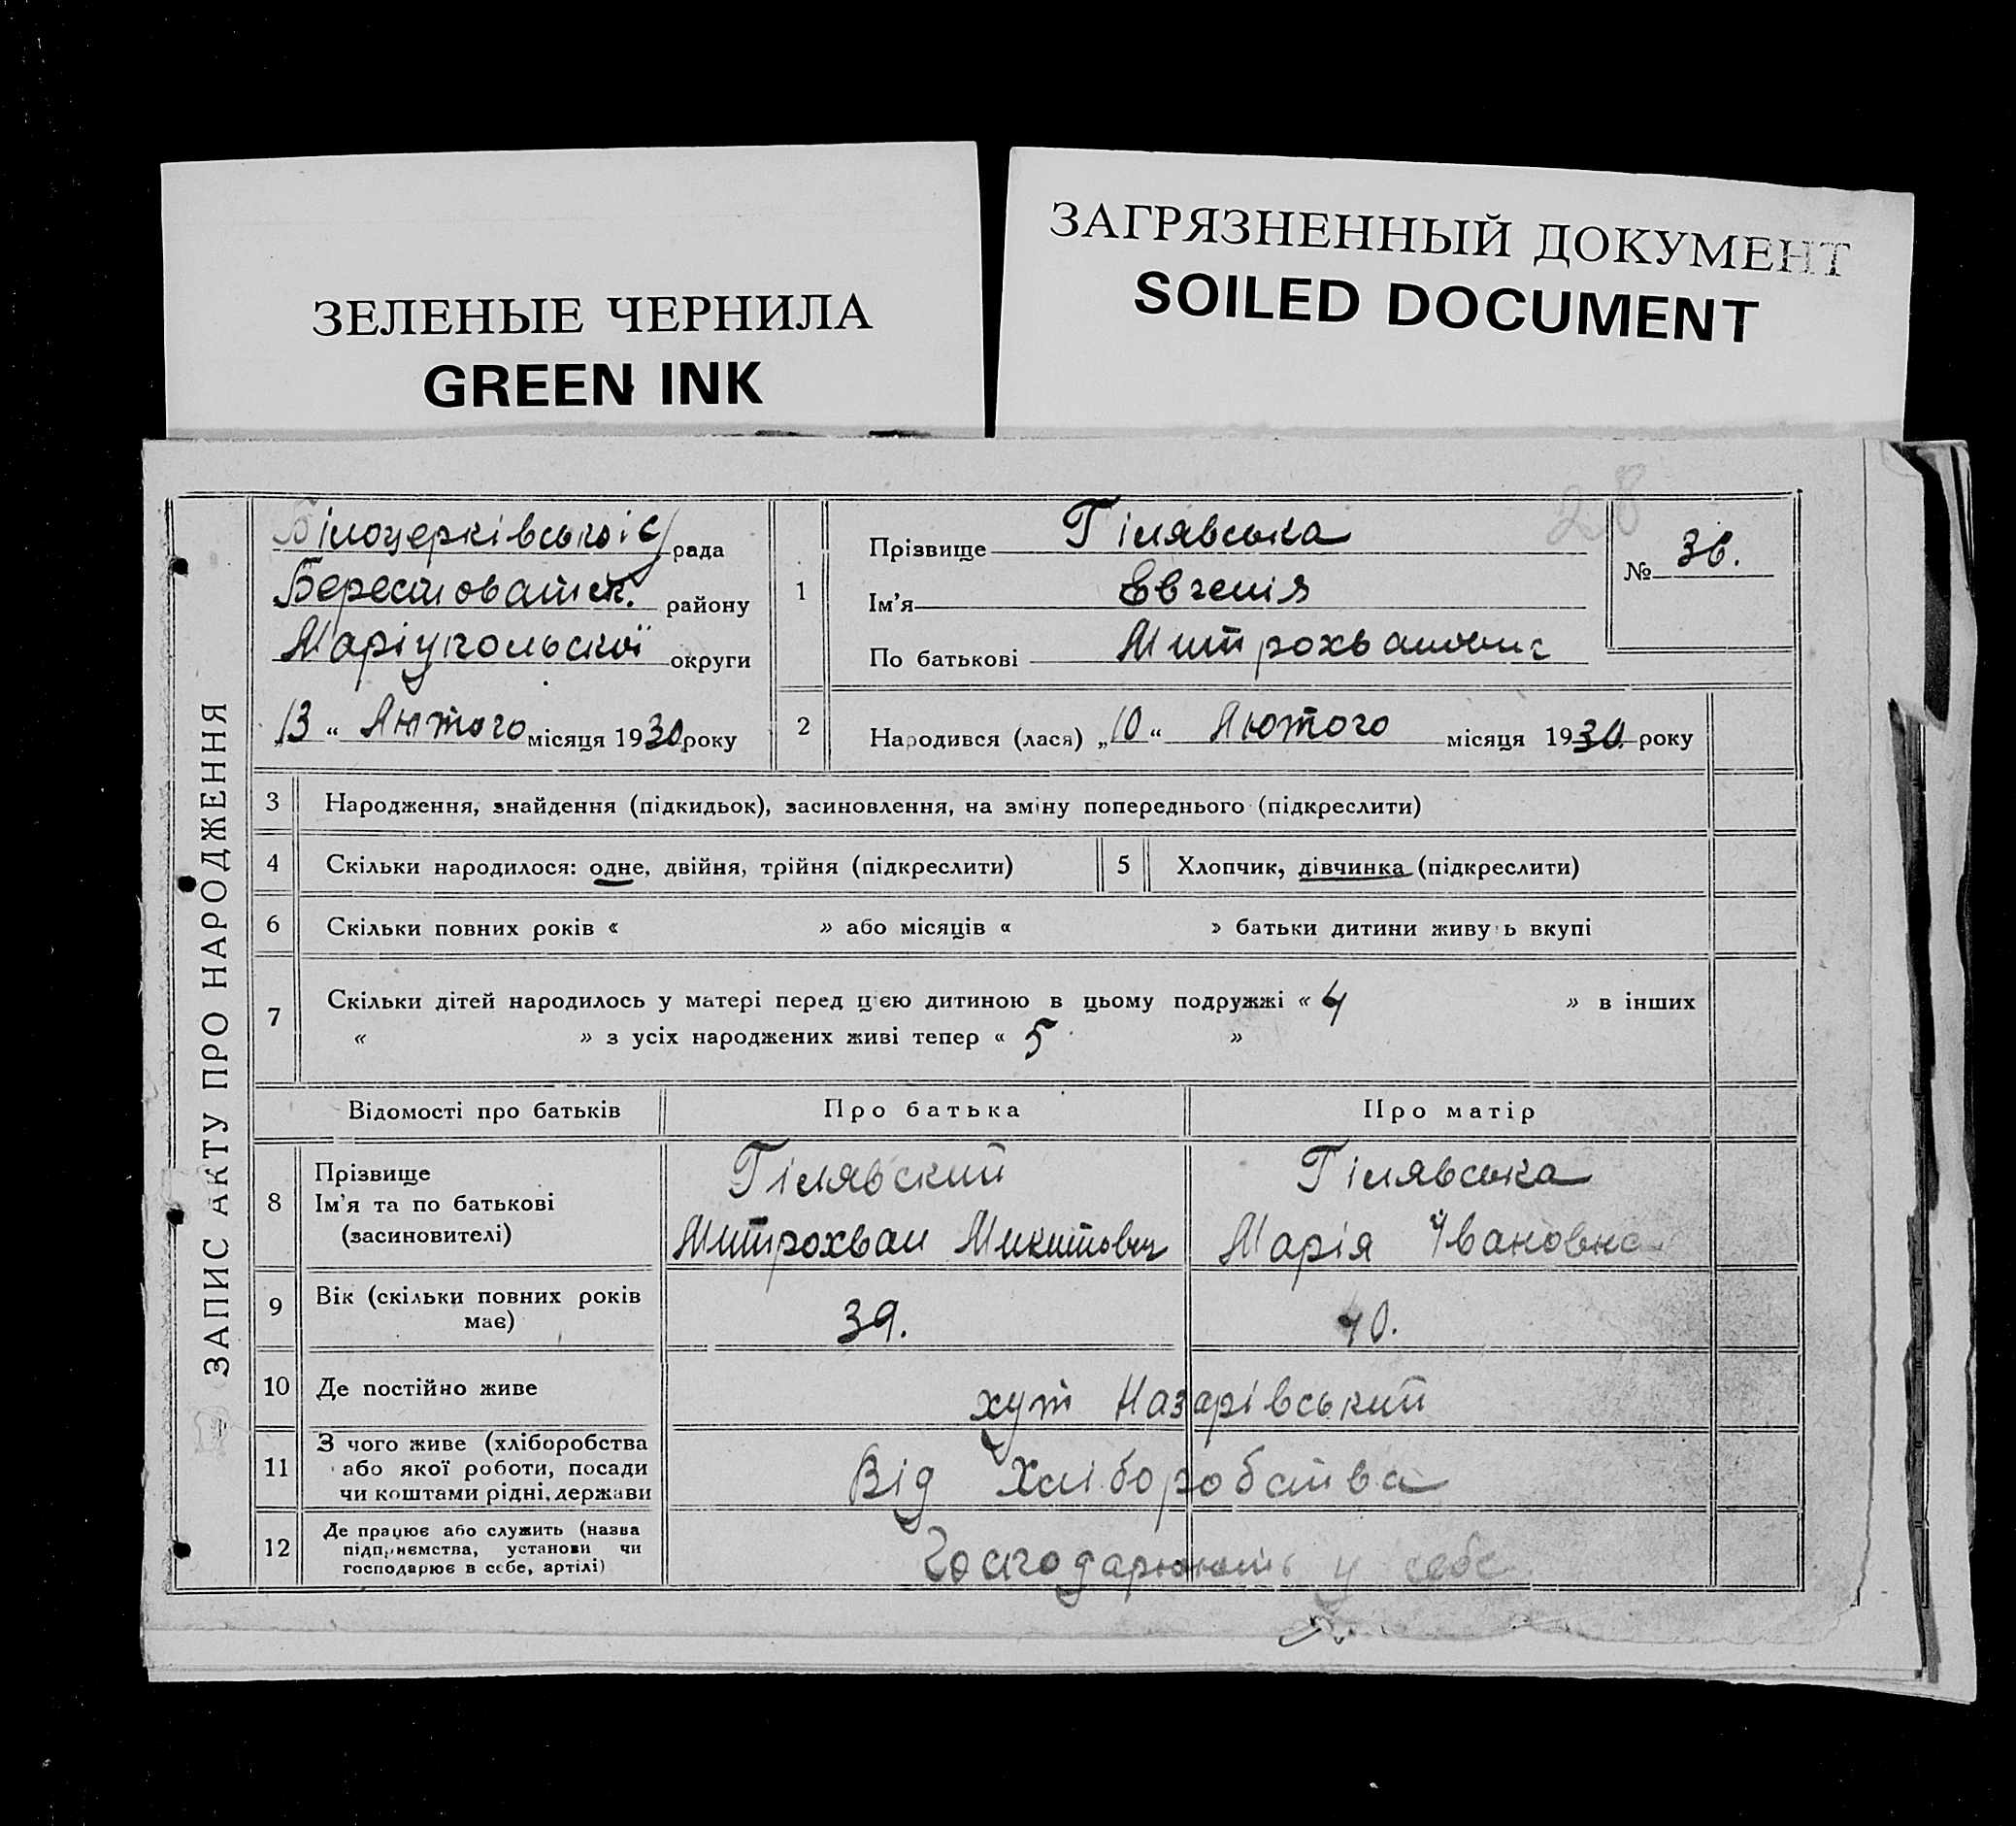 ЗЕЛЕНЫЕ ЧЕРНИЛА
GREEN INK
ЗАГРЯЗНЕННЫЙ ДОКУМЕНТ
SOILED DOCUMENT
28
ЗАПИС АКТУ ПРО НАРОДЖЕННЯ
Білоцерківської с/рада
Берестоватськ. району
Маріупольської округи
„13“ Лютого місяця 1930 року
1
Прізвище Гілявська
Ім'я Евгенія
По батькові Митрохвановна
№ 36.
2
Народився (лася) „10“ Лютого місяця 1930 року
3 Народження, знайдення (підкидьок), засиновлення, на зміну попереднього (підкреслити)
4 Скільки народилося: одне, двійня, трійня (підкреслити)
5 Хлопчик, дівчинка (підкреслити)
6 Скільки повних років « » або місяців « » батьки дитини живуть вкупі
7 Скільки дітей народилось у матері перед цією дитиною в цьому подружжі «4 » в інших
« » з усіх народжених живі тепер « 5 »
Відомості про батьків Про батька Про матір
8 Прізвище
Ім'я та по батькові
(засиновителі)
Гілявский
Митрохван Микитович
Гілявська
Марія Ивановна
9 Вік (скільки повних років
має)
39. 40.
10 Де постійно живе хут Назарівський
11 З чого живе (хліборобства
або якої роботи, посади
чи коштами рідні, держави
Від Хліборобства
12 Де працює або служить (назва
підприємства, установи чи
господарює в себе, артілі)
Господарюють у себе